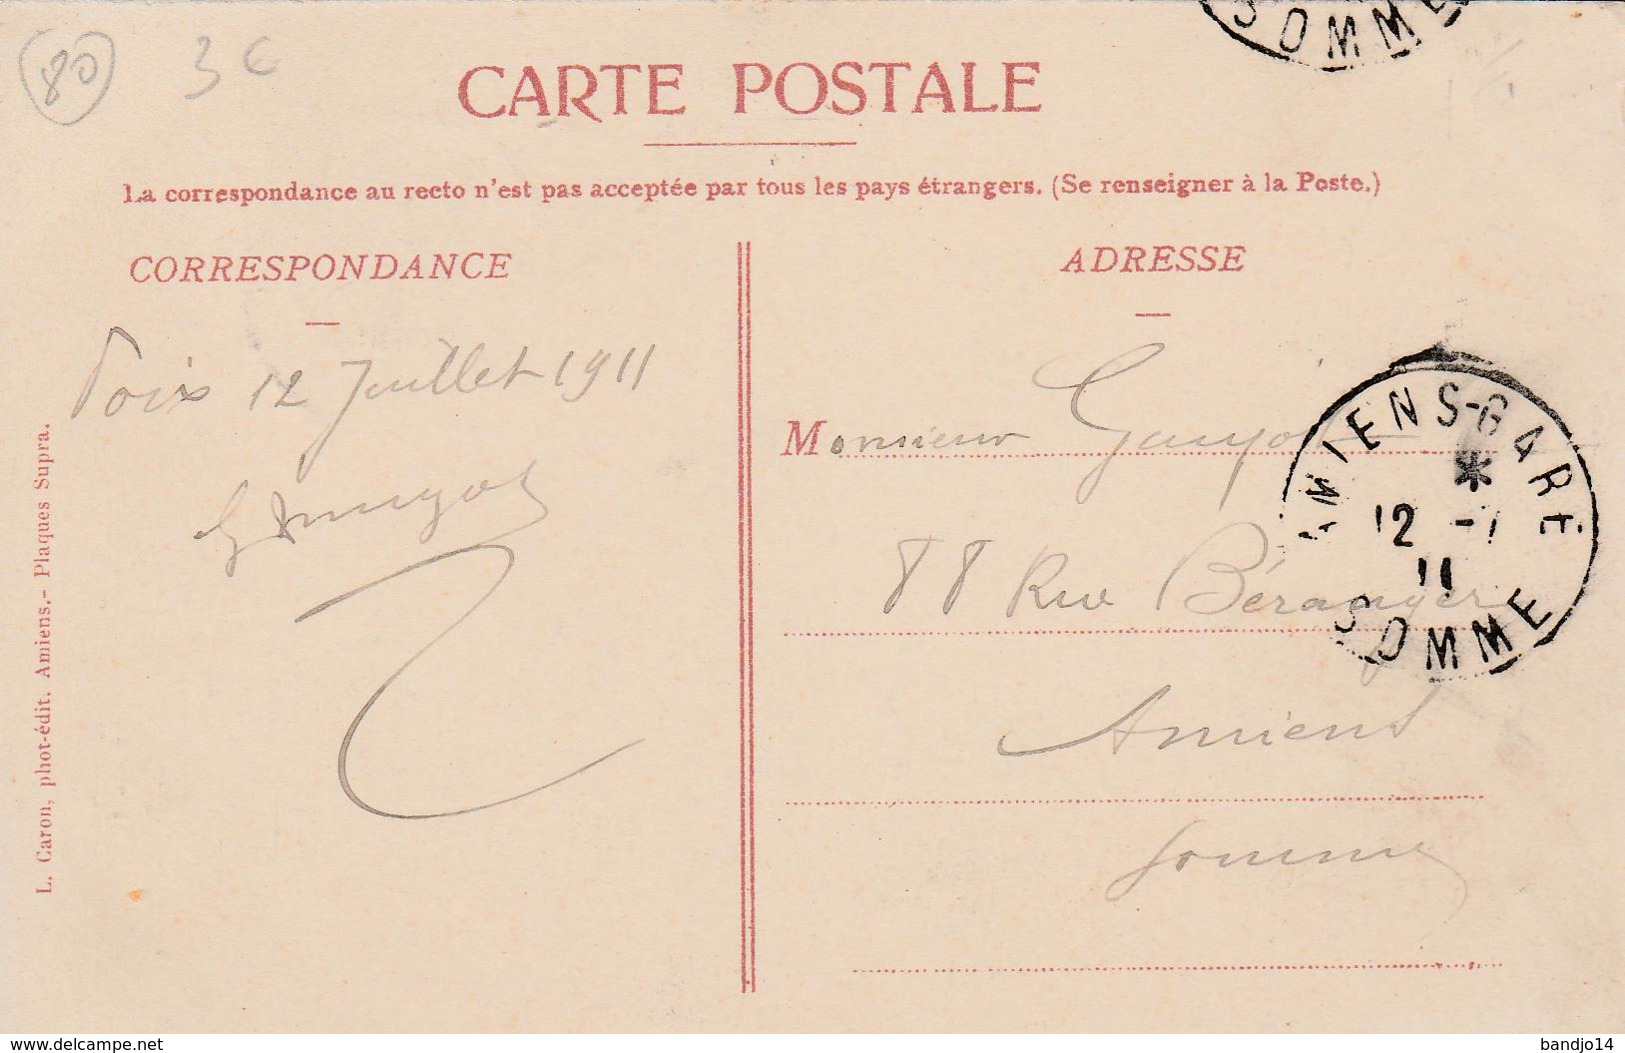 SOMME
80
3 €
CARTE POSTALE
La correspondance au recto n'est pas acceptée par tous les pays étrangers. (Se renseigner à la Poste.)
CORRESPONDANCE
Poix 12 Juillet 1911
L. Caron, phot-édit. Amiens.- Plaques Supra.
ADRESSE
Monsieur
88 Rue Béranger
Amiens
Somme
AMIENS-GARE
*
12 -7
11
SOMME
www.delcampe.net
bandjo14